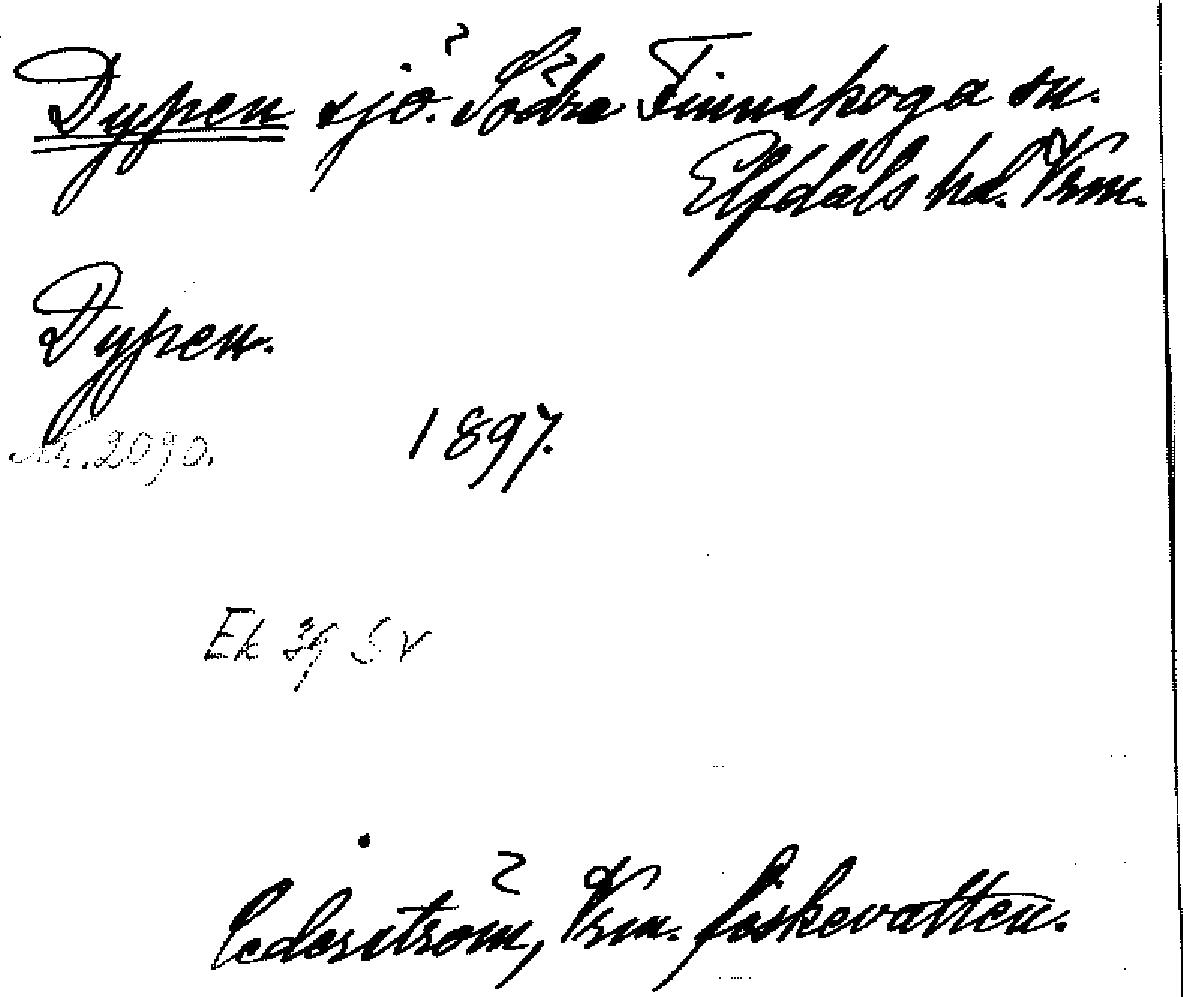 Dypen sjö. Södra Finnskoga sn.
Elfdals hd. Vrm.
Dypen.
Nr. 2090.
1897.
Ek 39 SV
Cederström, Vrm. fiskevatten.